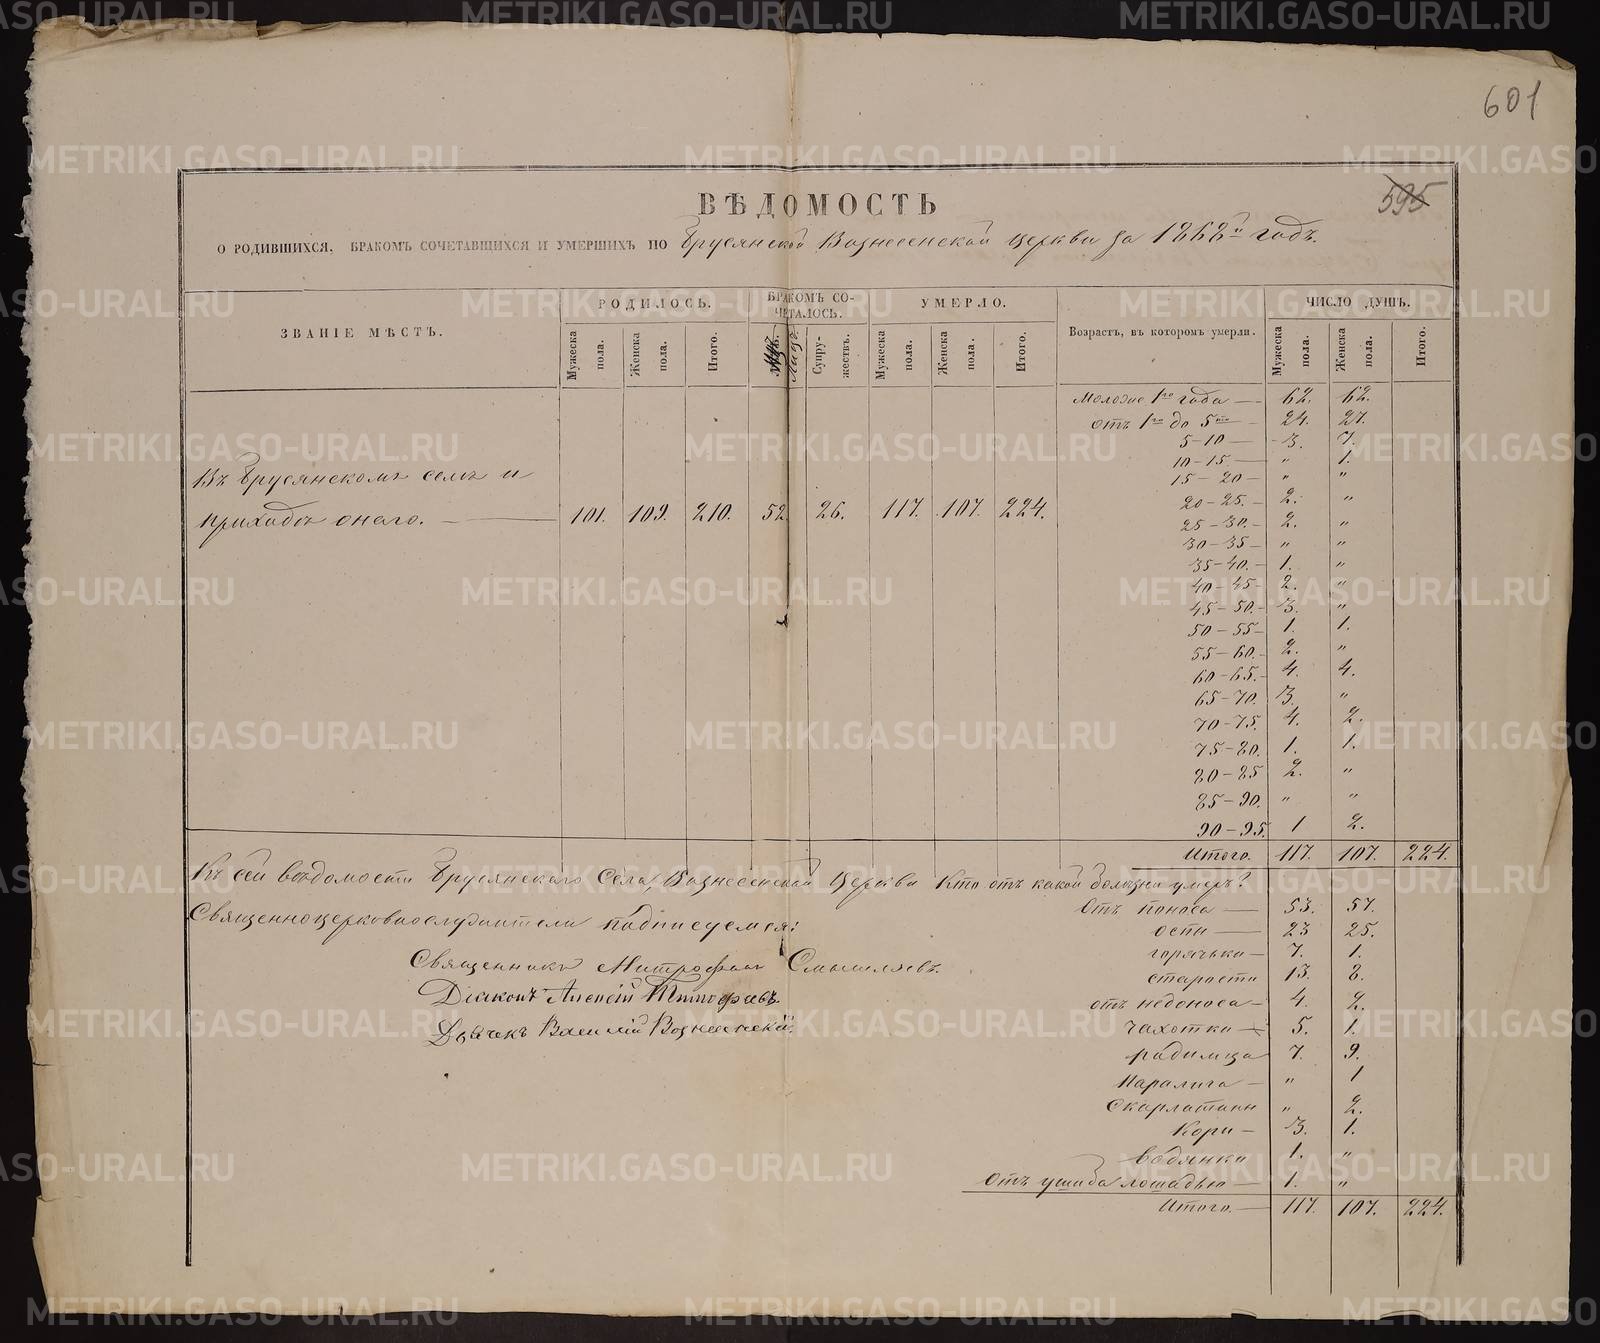 601
595
ВѢДОМОСТЬ
О РОДИВШИХСЯ, БРАКОМЪ СОЧЕТАВШИХСЯ И УМЕРШИХЪ ПО Брусянской Вознесенской церкви за 1868й годъ.
ЗВАНІЕ МѢСТЪ.
РОДИЛОСЬ.
БРАКОМЪ СОЧЕТАЛОСЬ.
УМЕРЛО.
Возрастъ, въ которомъ умерли.
ЧИСЛО ДУШЪ.
Мужеска пола. Женска пола. Итого. Лицъ. Супружествъ. Мужеска пола. Женска пола. Итого. Мужеска пола. Женска пола. Итого.
Въ Брусянскомъ селѣ и
приходѣ онаго. — 101. 109. 210. 52. 26. 117. 107. 224.
Моложе 1го года — 62. 62.
отъ 1го до 5ти — 24. 27.
5-10 — 3. 7.
10-15. — " 1.
15-20 — " "
20-25. — 2. "
25-30. — 2. "
30-35 — " "
35-40. — 1. "
40-45 — 2. "
45-50. — 3. "
50-55 — 1. 1.
55-60. — 2. "
60-65. — 4. 4.
65-70. 3. "
70-75. 4. 2.
75-80. 1. 1.
80-85 2. "
85-90. " "
90-95. 1 2.
Итого. 117. 107. 224.
Къ сей вѣдомости Брусянскаго Села, Вознесенской Церкви
Священноцерковнослужители подписуемся:
Священникъ Митрофанъ Смышляевъ.
Діаконъ Алексій Тимофеевъ.
Дьячекъ Василій Вознесенскій.
Кто отъ какой болѣзни умеръ?
Отъ поноса — 53. 57.
оспы — 23 25.
горячьки — 7. 1.
старости 13. 8.
отъ недоноса — 4. 2.
чахотки — 5. 1.
родимца 7. 9.
Паралича — " 1
Скарлатины " 2.
Кори — 3. 1.
водянки 1. "
Отъ ушиба лошадью — 1. "
Итого. — 117. 107. 224.
METRIKI.GASO-URAL.RU